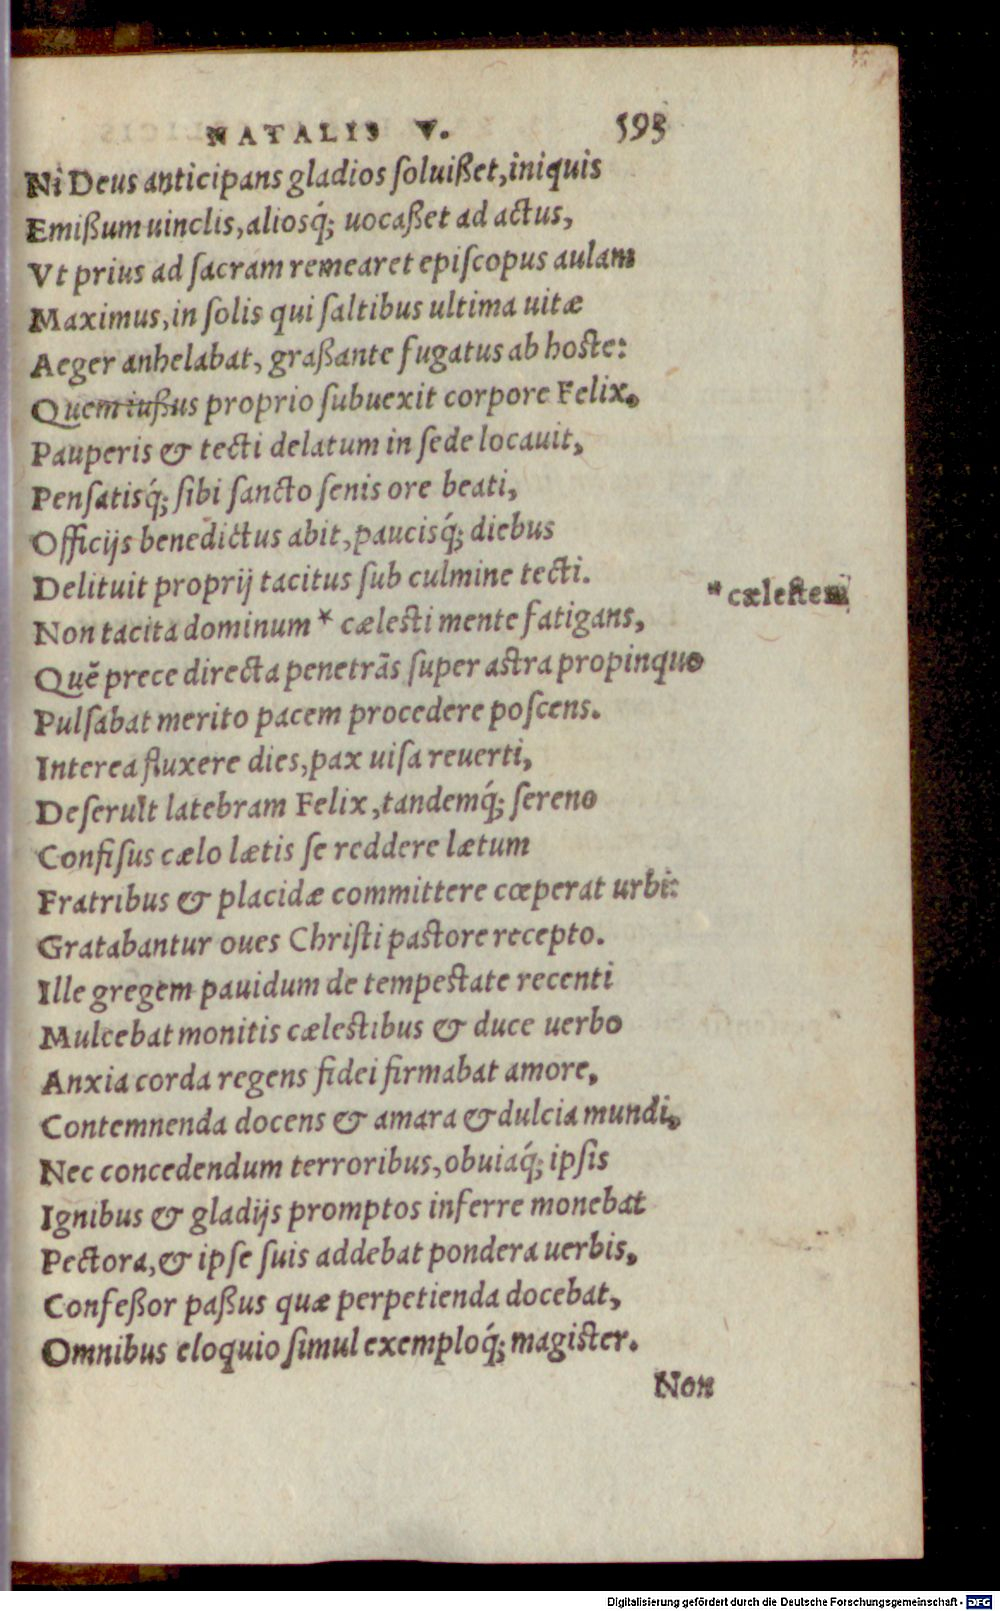 NATALIS V. 593
Ni Deus anticipans gladios ſoluißet, iniquis
Emißum uinclis, aliosq́; uocaßet ad actus,
Vt prius ad ſacram remearet epiſcopus aulam
Maximus, in ſolis qui ſaltibus ultima uitæ
Aeger anhelabat, graßante fugatus ab hoste:
Quem iußus proprio ſubuexit corpore Felix,
Pauperis & tecti delatum in ſede locauit,
Penſatisq́; ſibi ſancto ſenis ore beati,
Officijs benedictus abit, paucisq́; diebus
Delituit proprij tacitus ſub culmine tecti.
Non tacita dominum * cælesti mente fatigans, * cæleſtem
Quẽ prece directa penetrãs ſuper astra propinquo
Pulſabat merito pacem procedere poſcens.
Interea fluxere dies, pax uiſa reuerti,
Deſeruit latebram Felix, tandemq́; ſereno
Confiſus cælo lætis ſe reddere lætum
Fratribus & placidæ committere cœperat urbi:
Gratabantur oues Chriſti pastore recepto.
Ille gregem pauidum de tempestate recenti
Mulcebat monitis cælestibus & duce uerbo
Anxia corda regens fidei firmabat amore,
Contemnenda docens & amara & dulcia mundi,
Nec concedendum terroribus, obuiaq́; ipſis
Ignibus & gladijs promptos inferre monebat
Pectora, & ipſe ſuis addebat pondera uerbis,
Confeßor paßus quæ perpetienda docebat,
Omnibus eloquio ſimul exemploq́; magister.
Non
Digitalisierung gefördert durch die Deutsche Forschungsgemeinschaft - DFG